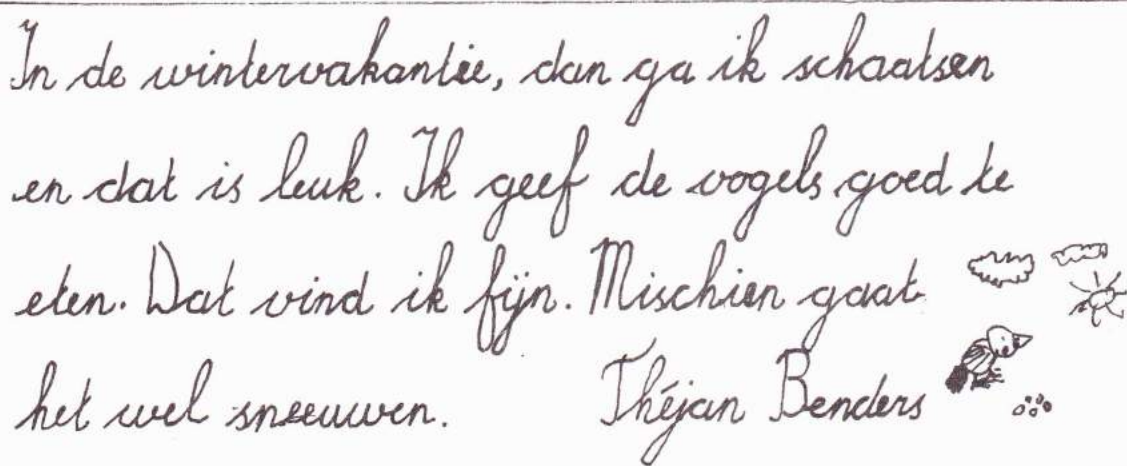 In de wintervakantie, dan ga ik schaatsen
en dat is leuk. Ik geef de vogels goed te
eten. Dat vind ik fijn. Mischien gaat
het wel sneeuwen. Théjan Benders